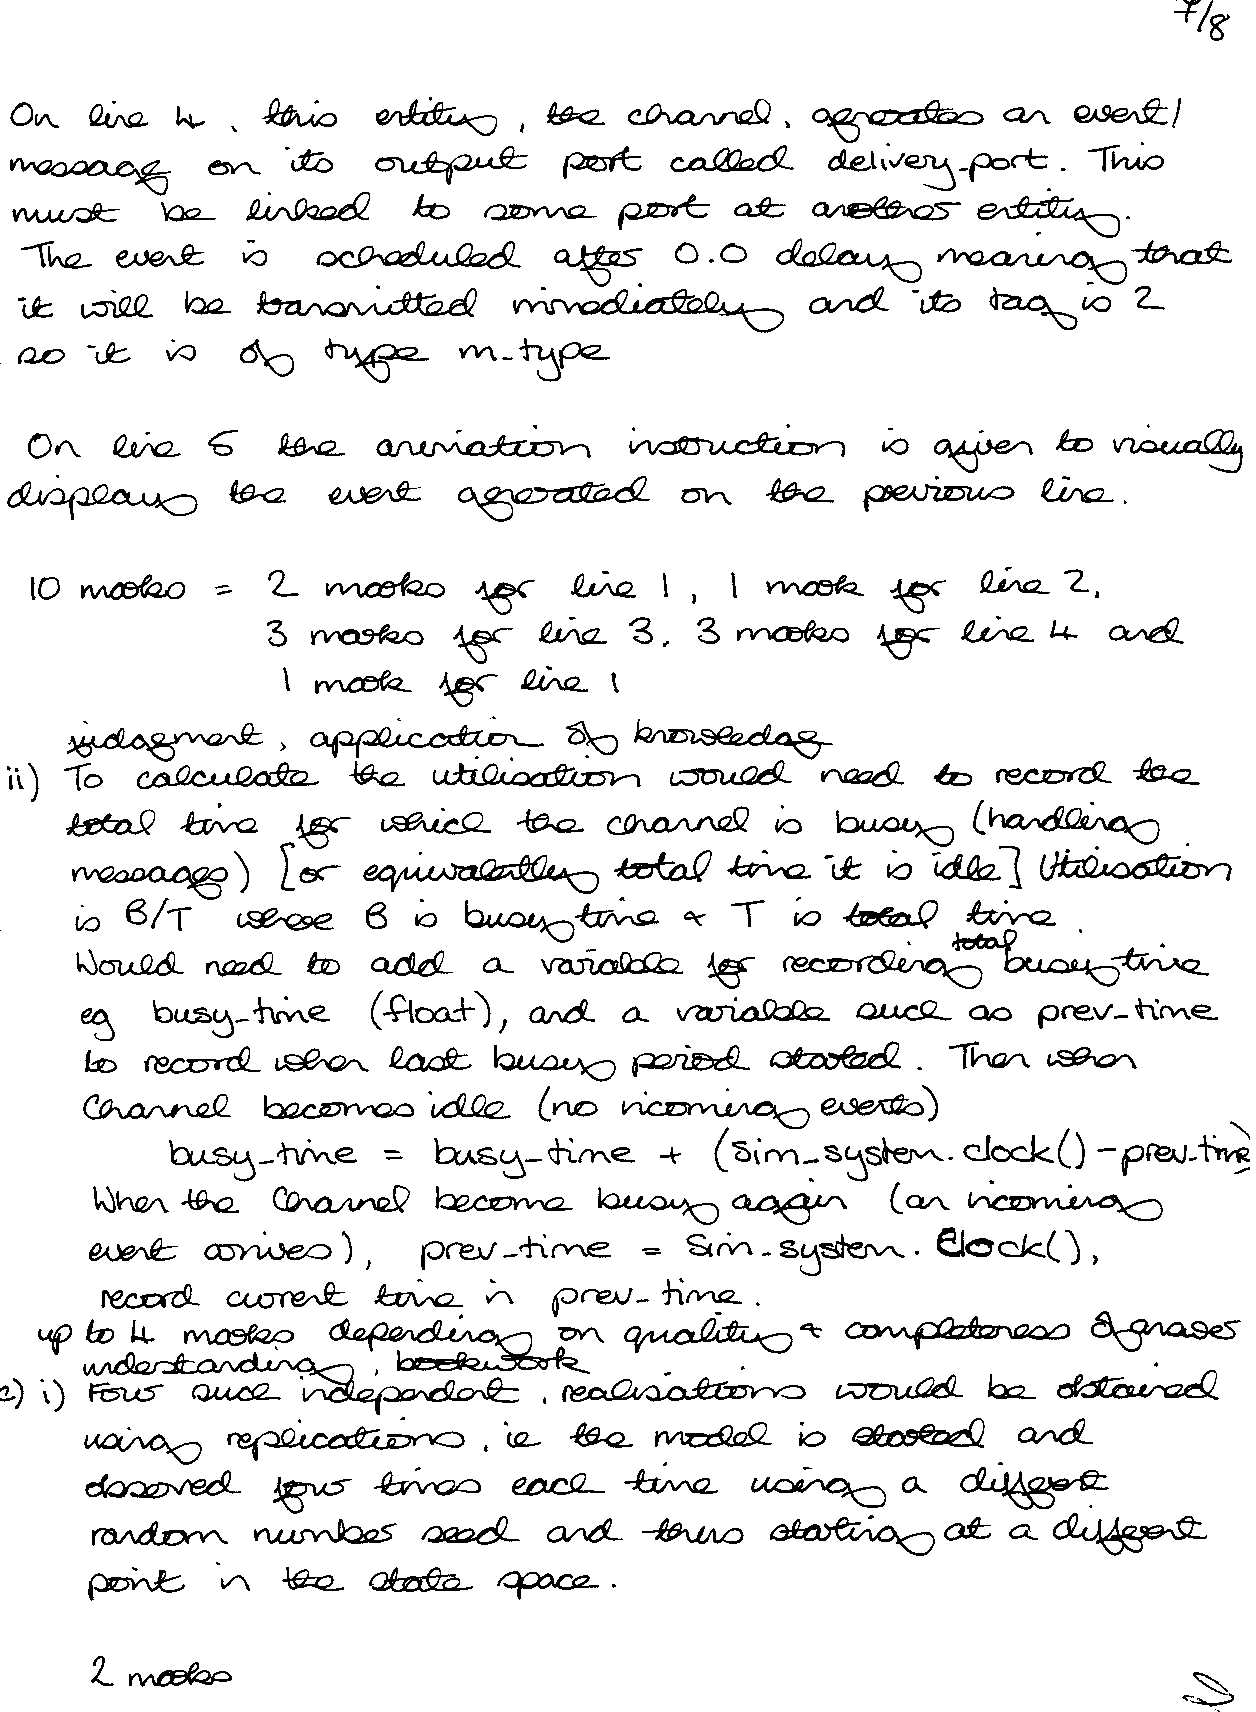 7/8
On line 4, this entity, the channel, generates an event/
message on its output port called delivery_port. This
must be linked to some port at another entity.
The event is scheduled after 0.0 delay meaning that
it will be transmitted immediately and its tag is 2
so it is of type m_type
On line 5 the animation instruction is given to visually
display the event generated on the previous line.
10 marks = 2 marks for line 1, 1 mark for line 2,
3 marks for line 3, 3 marks for line 4 and
1 mark for line 1
judgment, application of knowledge
ii) To calculate the utilisation would need to record the
total time for which the channel is busy (handling
messages) [or equivalently total time it is idle] Utilisation
is B/T where B is busy time & T is total time.
Would need to add a variable for recording total busy time
eg busy_time (float), and a variable such as prev_time
to record when last busy period started. Then when
Channel becomes idle (no incoming events)
busy_time = busy_time + (sim_system.clock() - prev_time)
When the Channel become busy again (an incoming
event arrives), prev_time = sim_system.clock(),
record current time in prev_time.
up to 4 marks depending on quality & completeness of answer
understanding, bookwork
c) i) Four such independent, realisations would be obtained
using replications, ie the model is started and
observed four times each time using a different
random number seed and thus starting at a different
point in the state space.
2 marks